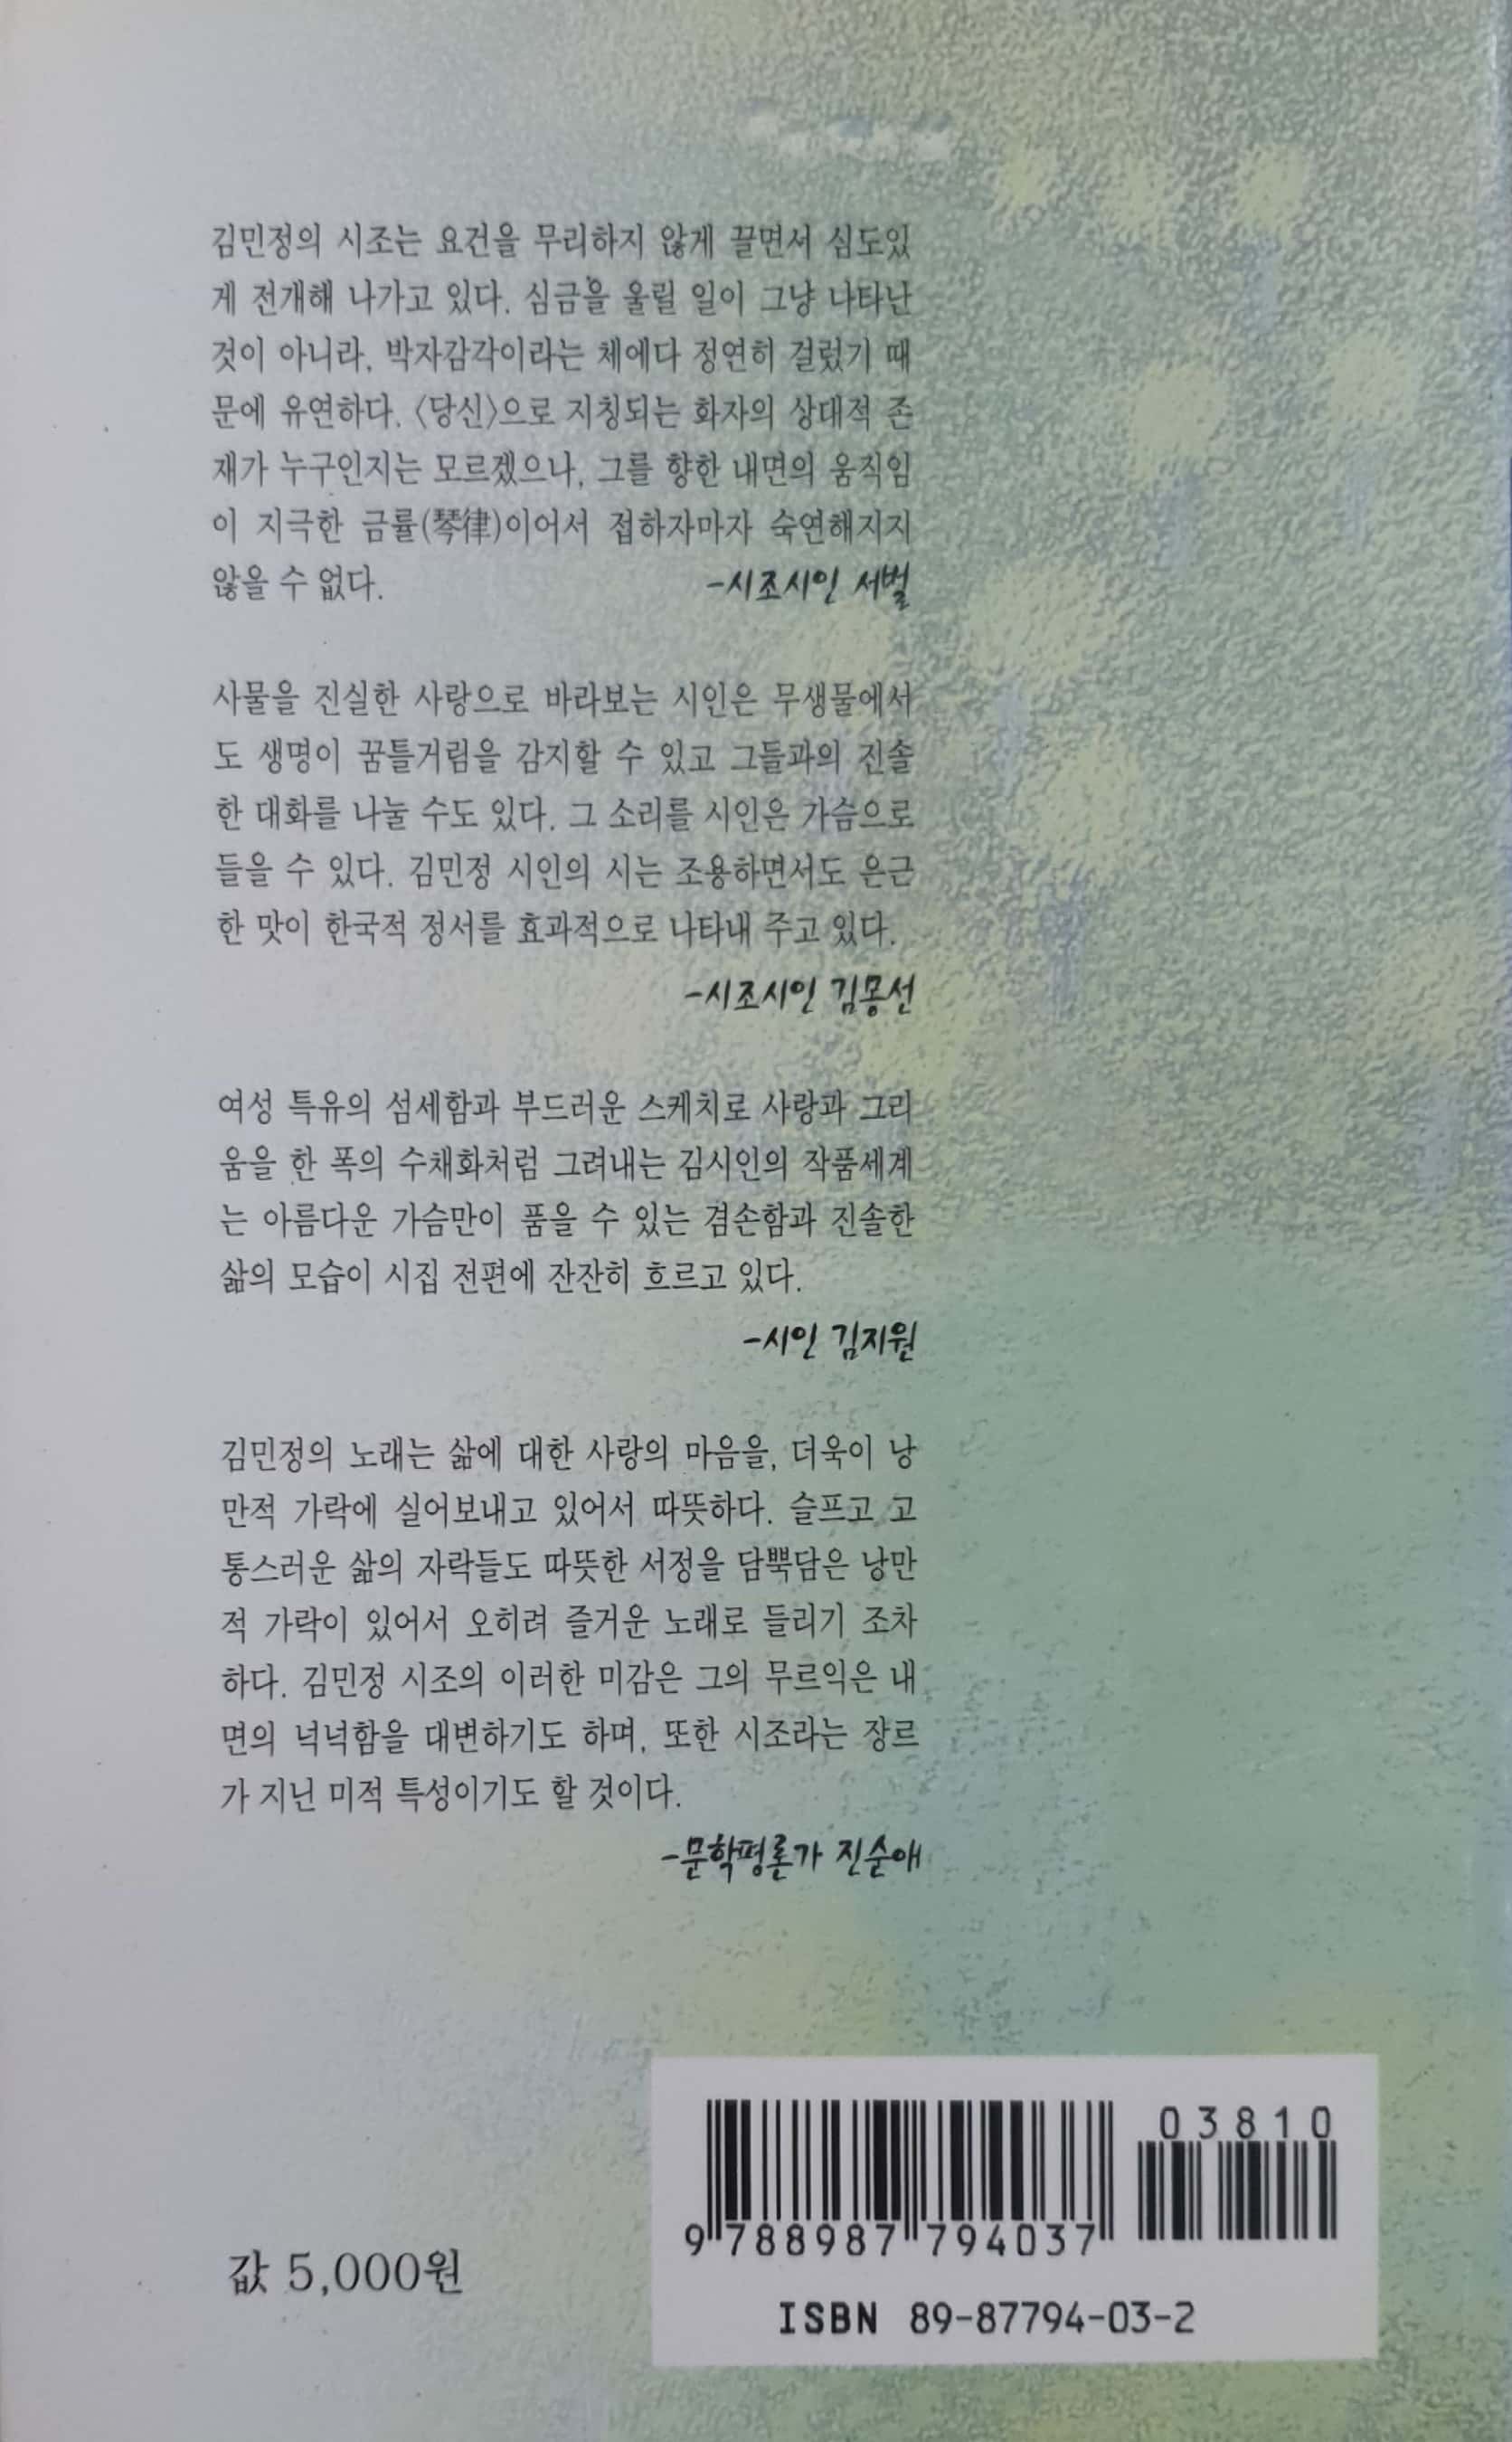 김민정의 시조는 요건을 무리하지 않게 끌면서 심도있
게 전개해 나가고 있다. 심금을 울릴 일이 그냥 나타난
것이 아니라, 박자감각이라는 체에다 정연히 걸렀기 때
문에 유연하다. 〈당신〉으로 지칭되는 화자의 상대적 존
재가 누구인지는 모르겠으나, 그를 향한 내면의 움직임
이 지극한 금률(琴律)이어서 접하자마자 숙연해지지
않을 수 없다. -시조시인 서벌
사물을 진실한 사랑으로 바라보는 시인은 무생물에서
도 생명이 꿈틀거림을 감지할 수 있고 그들과의 진솔
한 대화를 나눌 수도 있다. 그 소리를 시인은 가슴으로
들을 수 있다. 김민정 시인의 시는 조용하면서도 은근
한 맛이 한국적 정서를 효과적으로 나타내 주고 있다.
-시조시인 김몽선
여성 특유의 섬세함과 부드러운 스케치로 사랑과 그리
움을 한 폭의 수채화처럼 그려내는 김시인의 작품세계
는 아름다운 가슴만이 품을 수 있는 겸손함과 진솔한
삶의 모습이 시집 전편에 잔잔히 흐르고 있다.
-시인 김지원
김민정의 노래는 삶에 대한 사랑의 마음을, 더욱이 낭
만적 가락에 실어보내고 있어서 따뜻하다. 슬프고 고
통스러운 삶의 자락들도 따뜻한 서정을 담뿍담은 낭만
적 가락이 있어서 오히려 즐거운 노래로 들리기 조차
하다. 김민정 시조의 이러한 미감은 그의 무르익은 내
면의 넉넉함을 대변하기도 하며, 또한 시조라는 장르
가 지닌 미적 특성이기도 할 것이다.
-문학평론가 진순애
03810
9788987794037
값 5,000원
ISBN 89-87794-03-2